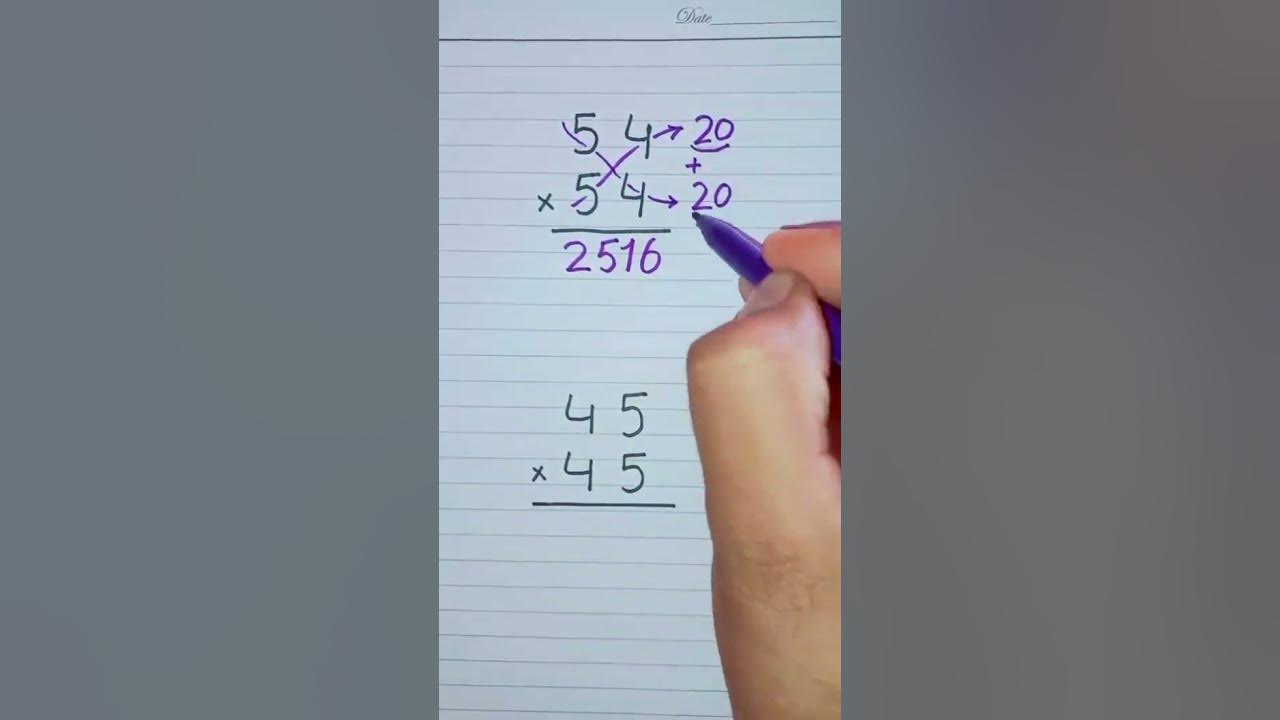 Date
5 4 → 20
+
× 5 4 → 20
2516
4 5
× 4 5